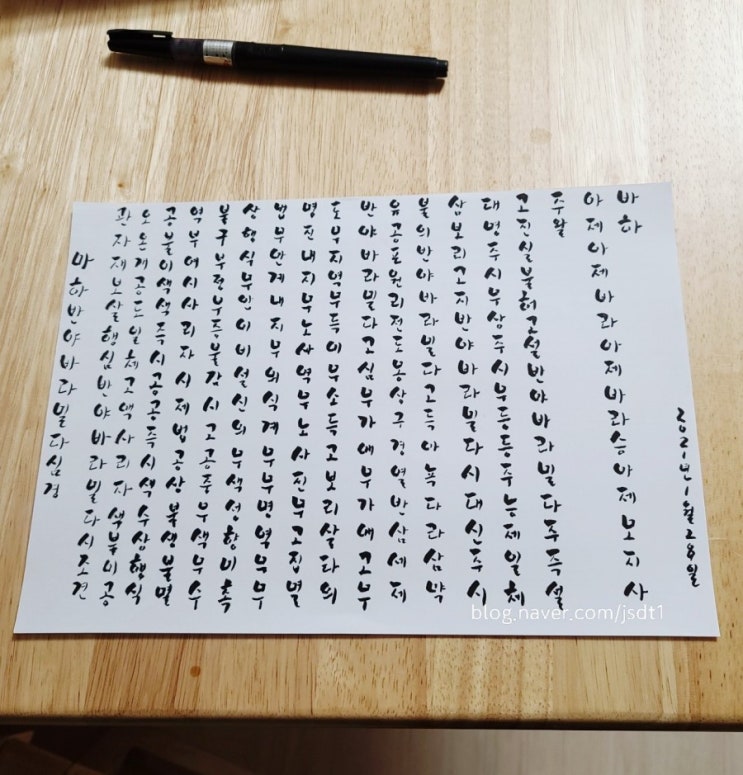 마하반야바라밀다심경
관자재보살행심반야바라밀다시조견
오온개공도일체고액사리자색불이공
공불이색색즉시공공즉시색수상행식
역부여시사리자시제법공상불생불멸
불구부정부증불감시고공중무색무수
상행식무안이비설신의무색성향미촉
법무안계내지무의식계무무명역무무
명진내지무노사역무노사진무고집멸
도무지역무득이무소득고보리살타의
반야바라밀다고심무가애무가애고무
유공포원리전도몽상구경열반삼세제
불의반야바라밀다고득아뇩다라삼먁
삼보리고지반야바라밀다시대신주시
대명주시무상주시무등등주능제일체
고진실불허고설반야바라밀다주즉설
주왈
아제아제바라아제바라승아제모지사
바하
2021년 1월 28일
blog.naver.com/jsdt1